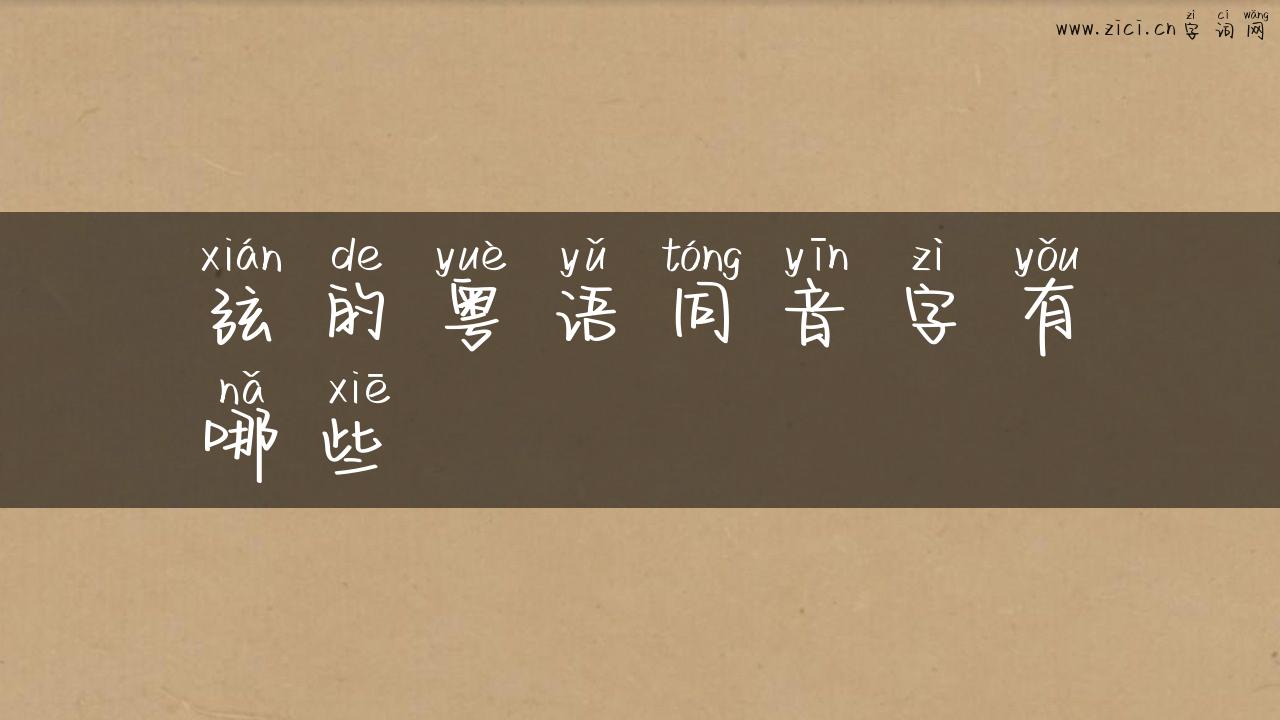 zì cí wǎng
www.zici.cn 字词网
xián de yuè yǔ tóng yīn zì yǒu
弦的粤语同音字有
nǎ xiē
哪些